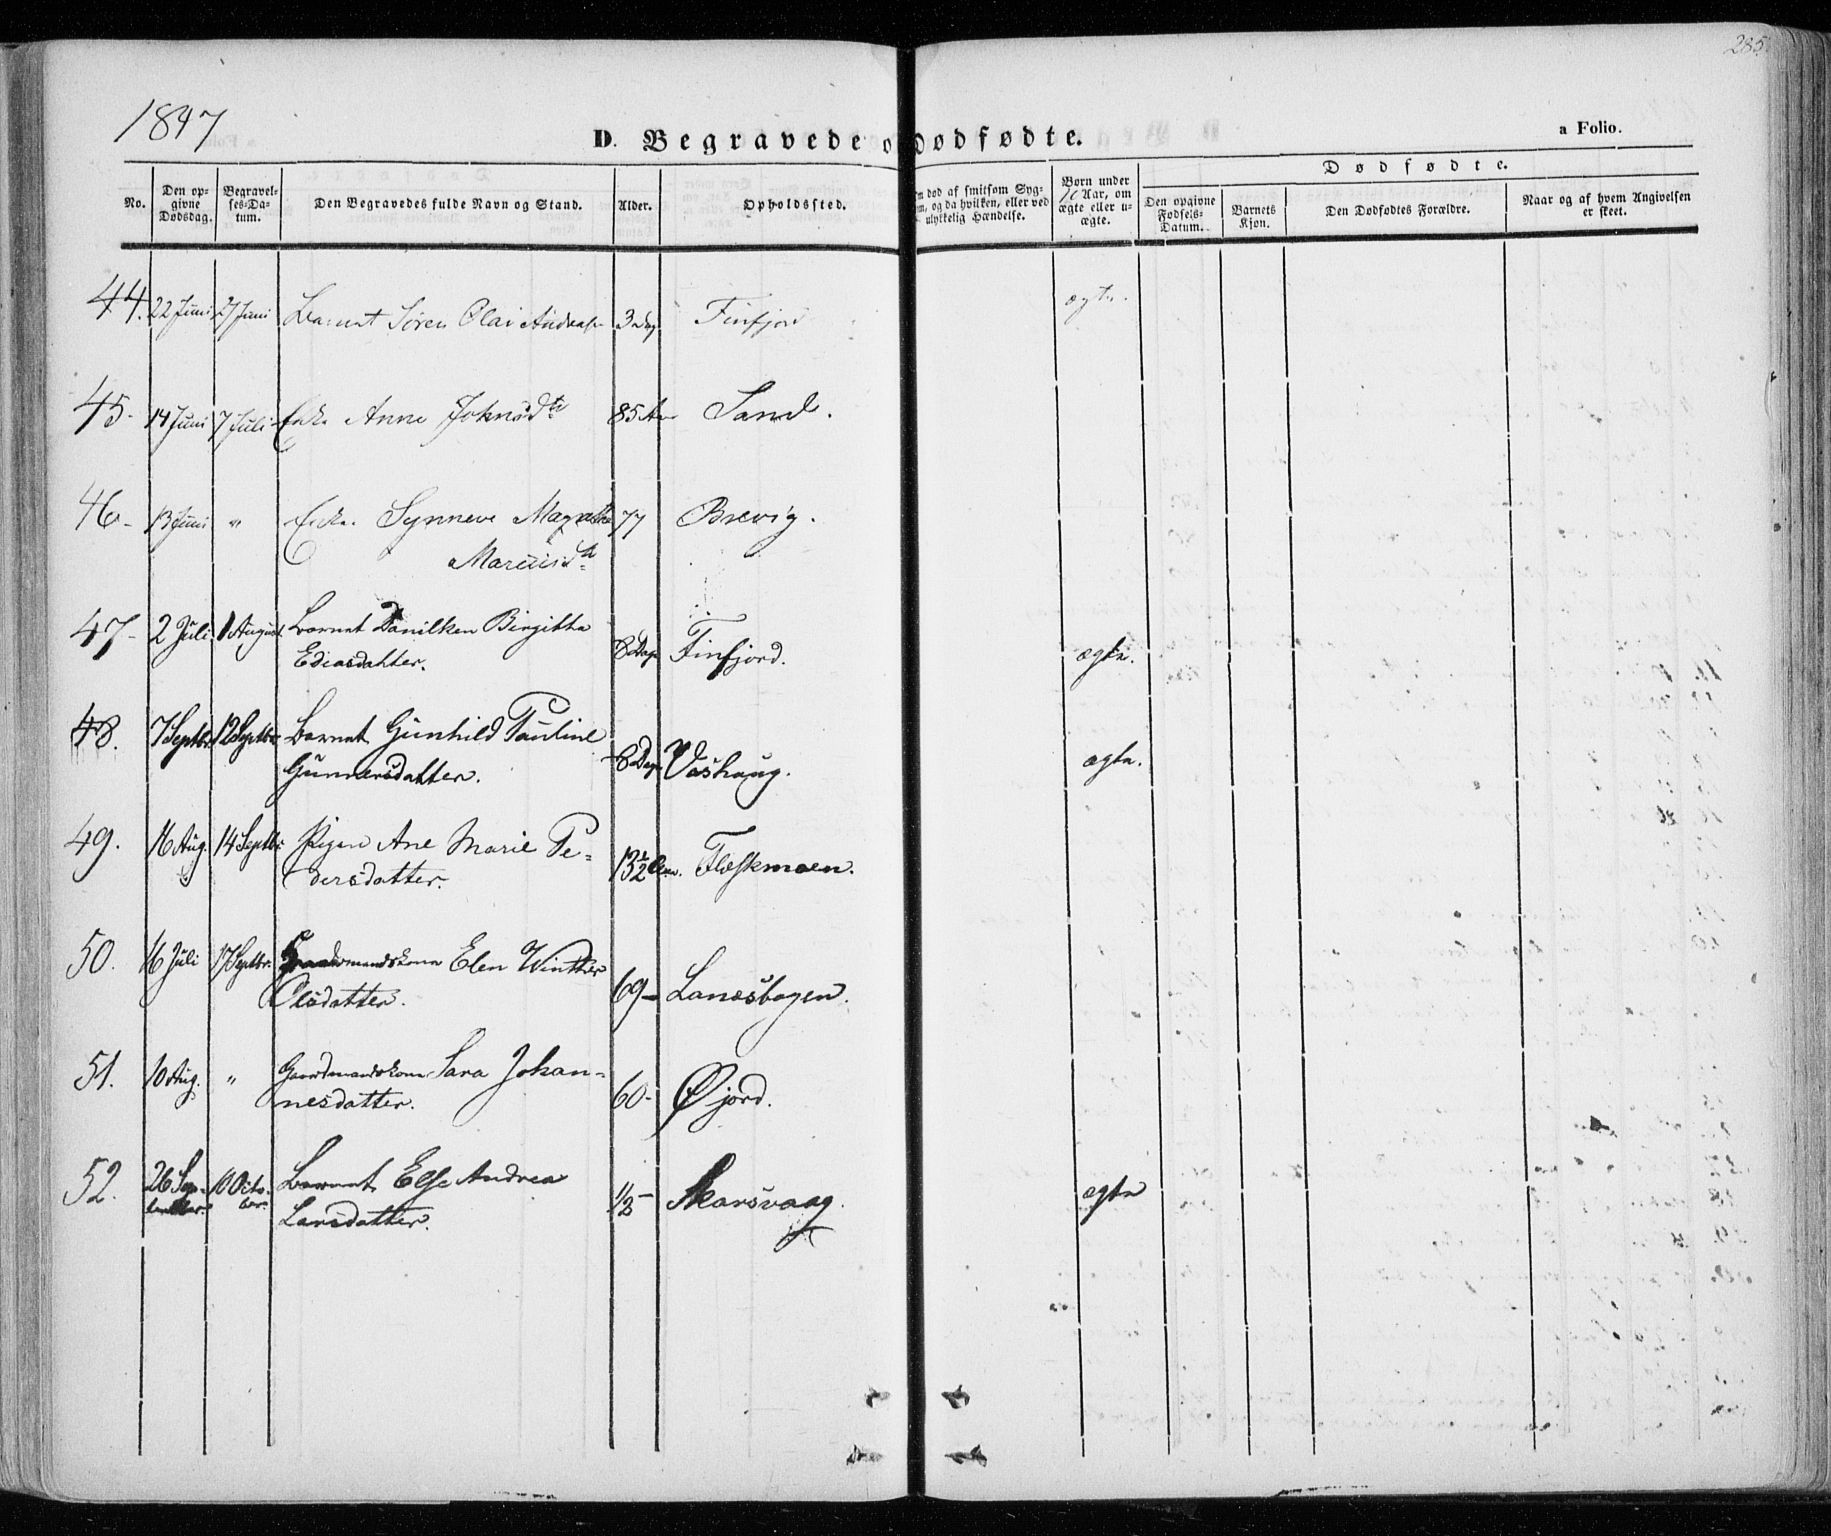 285
1847
D. Begravede o dødfødte.
a Folio.
No.
Den op-
givne
Dødsdag.
Begravel-
ses-Da-
tum.
Den Begravedes fulde Navn og Stand.
Alder.
Opholdssted.
død af smitsom Syg-
og da hvilken, eller ved
ulykkelig Hændelse.
Børn under
10 Aar, om
ægte eller u-
ægte.
Dødfødte.
Den opgivne
Fødsels-
Datum.
Barnets
Kjøn.
Den Dødfødtes Forældre.
Naar og af hvem Angivelsen
er skeet.
44. 22 Juni 27 Juni Barnet Søren Olai 3 Finfjord ægte.
45. 14 Juni 7 Juli Enke Anne Johnsdtr 85 Sand.
46. 13 Juni " Enke. Synneve
Marcusdtr 77 Brevig.
47. 2 Juli 1 August Barnet Danilken Birgitha
Ediasdatter. 8 Dage Finfjord. ægte.
48. 7 Septbr. 12 Septbr Barnet Gunhild Pauline
Gunnersdatter. 8 Dage Vashaug. ægte.
49. 16 Aug. 14 Septbr Pigen Ane Marie Pe-
dersdatter. 13½ Flæskmoen.
50. 16 Juli 17 Septbr. Gaardmandskone Elen Winther
Olsdatter. 69 - Lanesbogen.
51. 10 Aug. " Gaardmandskone Sara Johan-
nesdatter. 60 - Øjord.
52. 26 Sep-
tember. 10 Octo-
ber. Barnet Else Andrea
Larsdatter. 1/2 - Skarsvaag. ægte